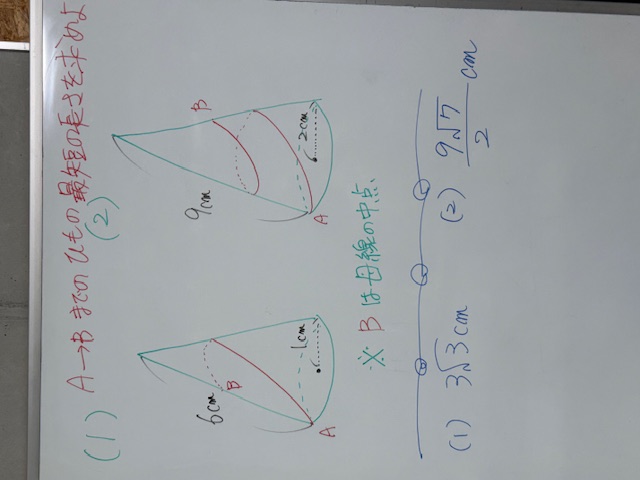 (1) A→Bまでのひもの最短の長さを求めよ
(2)
6cm
B
1cm
A
9cm
B
2cm
A
※ Bは母線の中点.
(1) 3√3 cm
(2) 9√7/2 cm